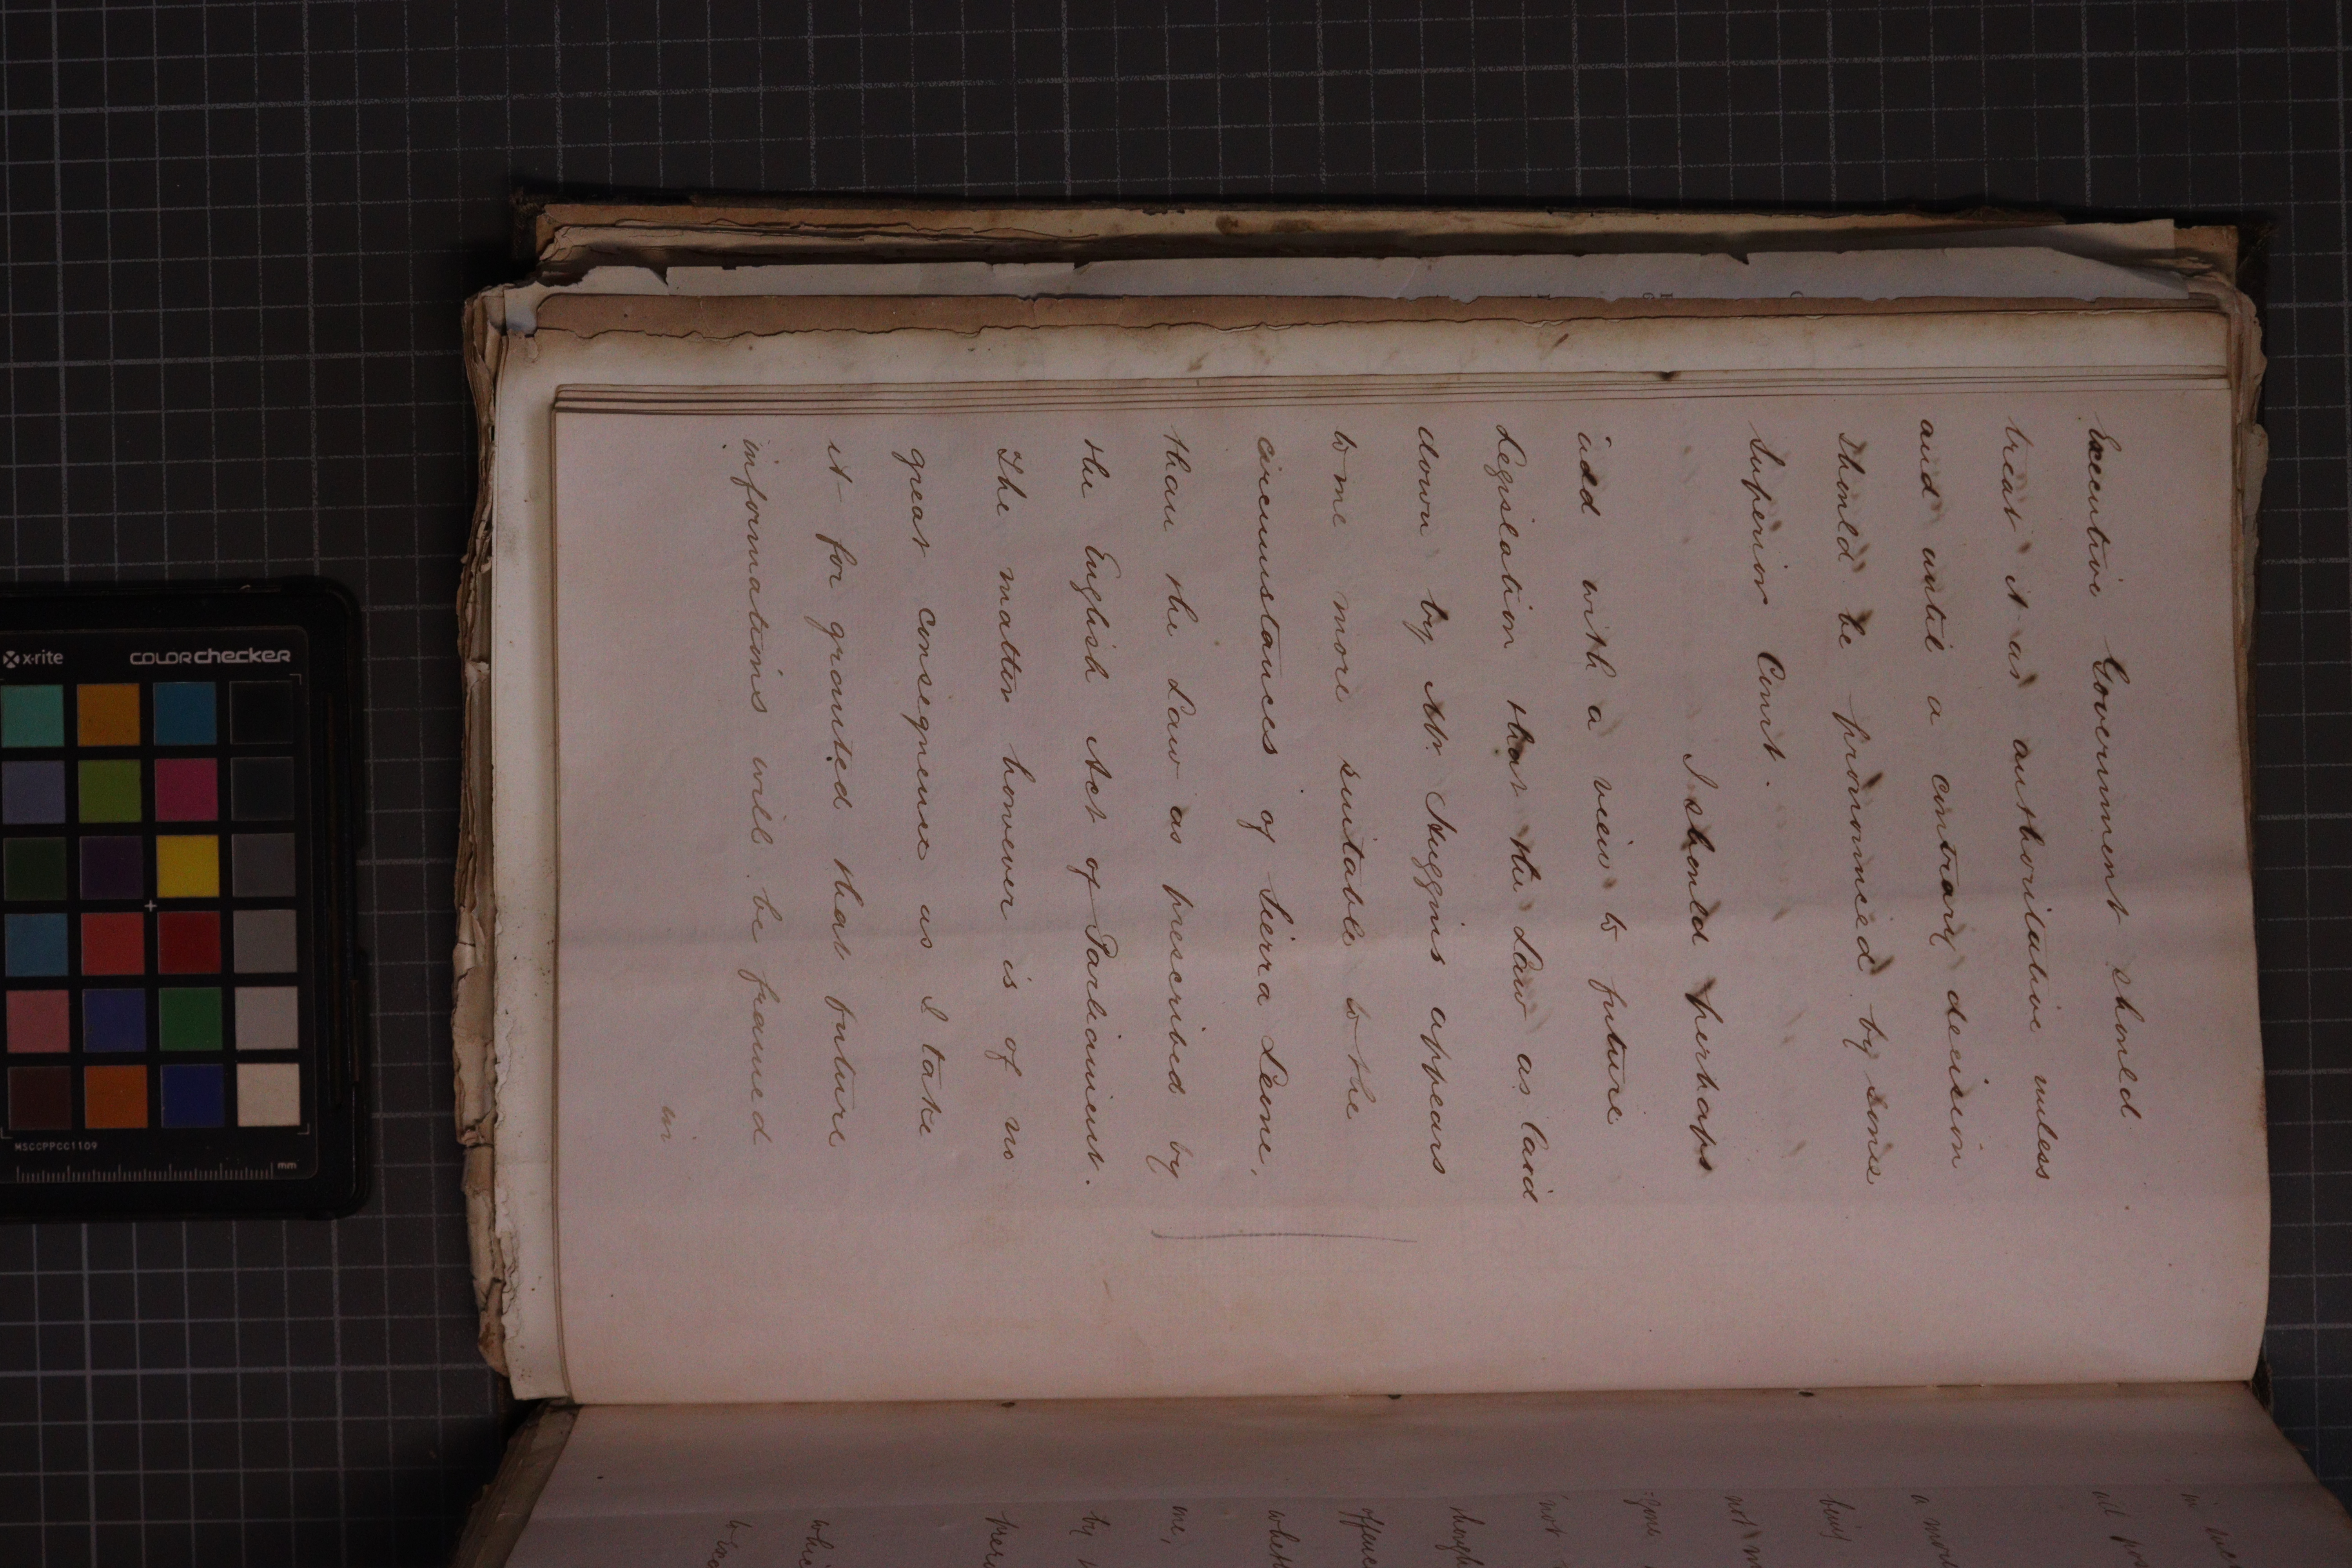 Executive Government should
treat it as authoritative unless
and until a contrary decision
should be pronounced by some
Superior Court.
I should perhaps
add with a view to future
Legislation that the Law as laid
down by Mr. Huggins appears
to me more suitable to the
circumstances of Sierra Leone,
than the Law as prescribed by
the English Act of Parliament.
The matter however is of no
great consequence as I take
it for granted that future
informations will be framed
in
x-rite
colorchecker
MSCCPPCC1109
mm
not
being
by
me,